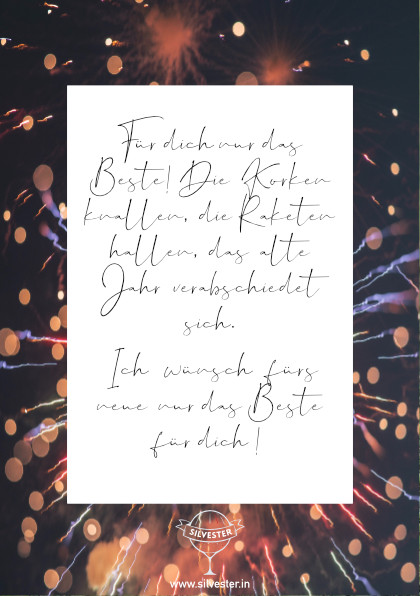 Für dich nur das
Beste! Die Korken
knallen, die Raketen
hallen, das alte
Jahr verabschiedet
sich.
Ich wünsch fürs
neue nur das Beste
für dich!
SILVESTER
www.silvester.in